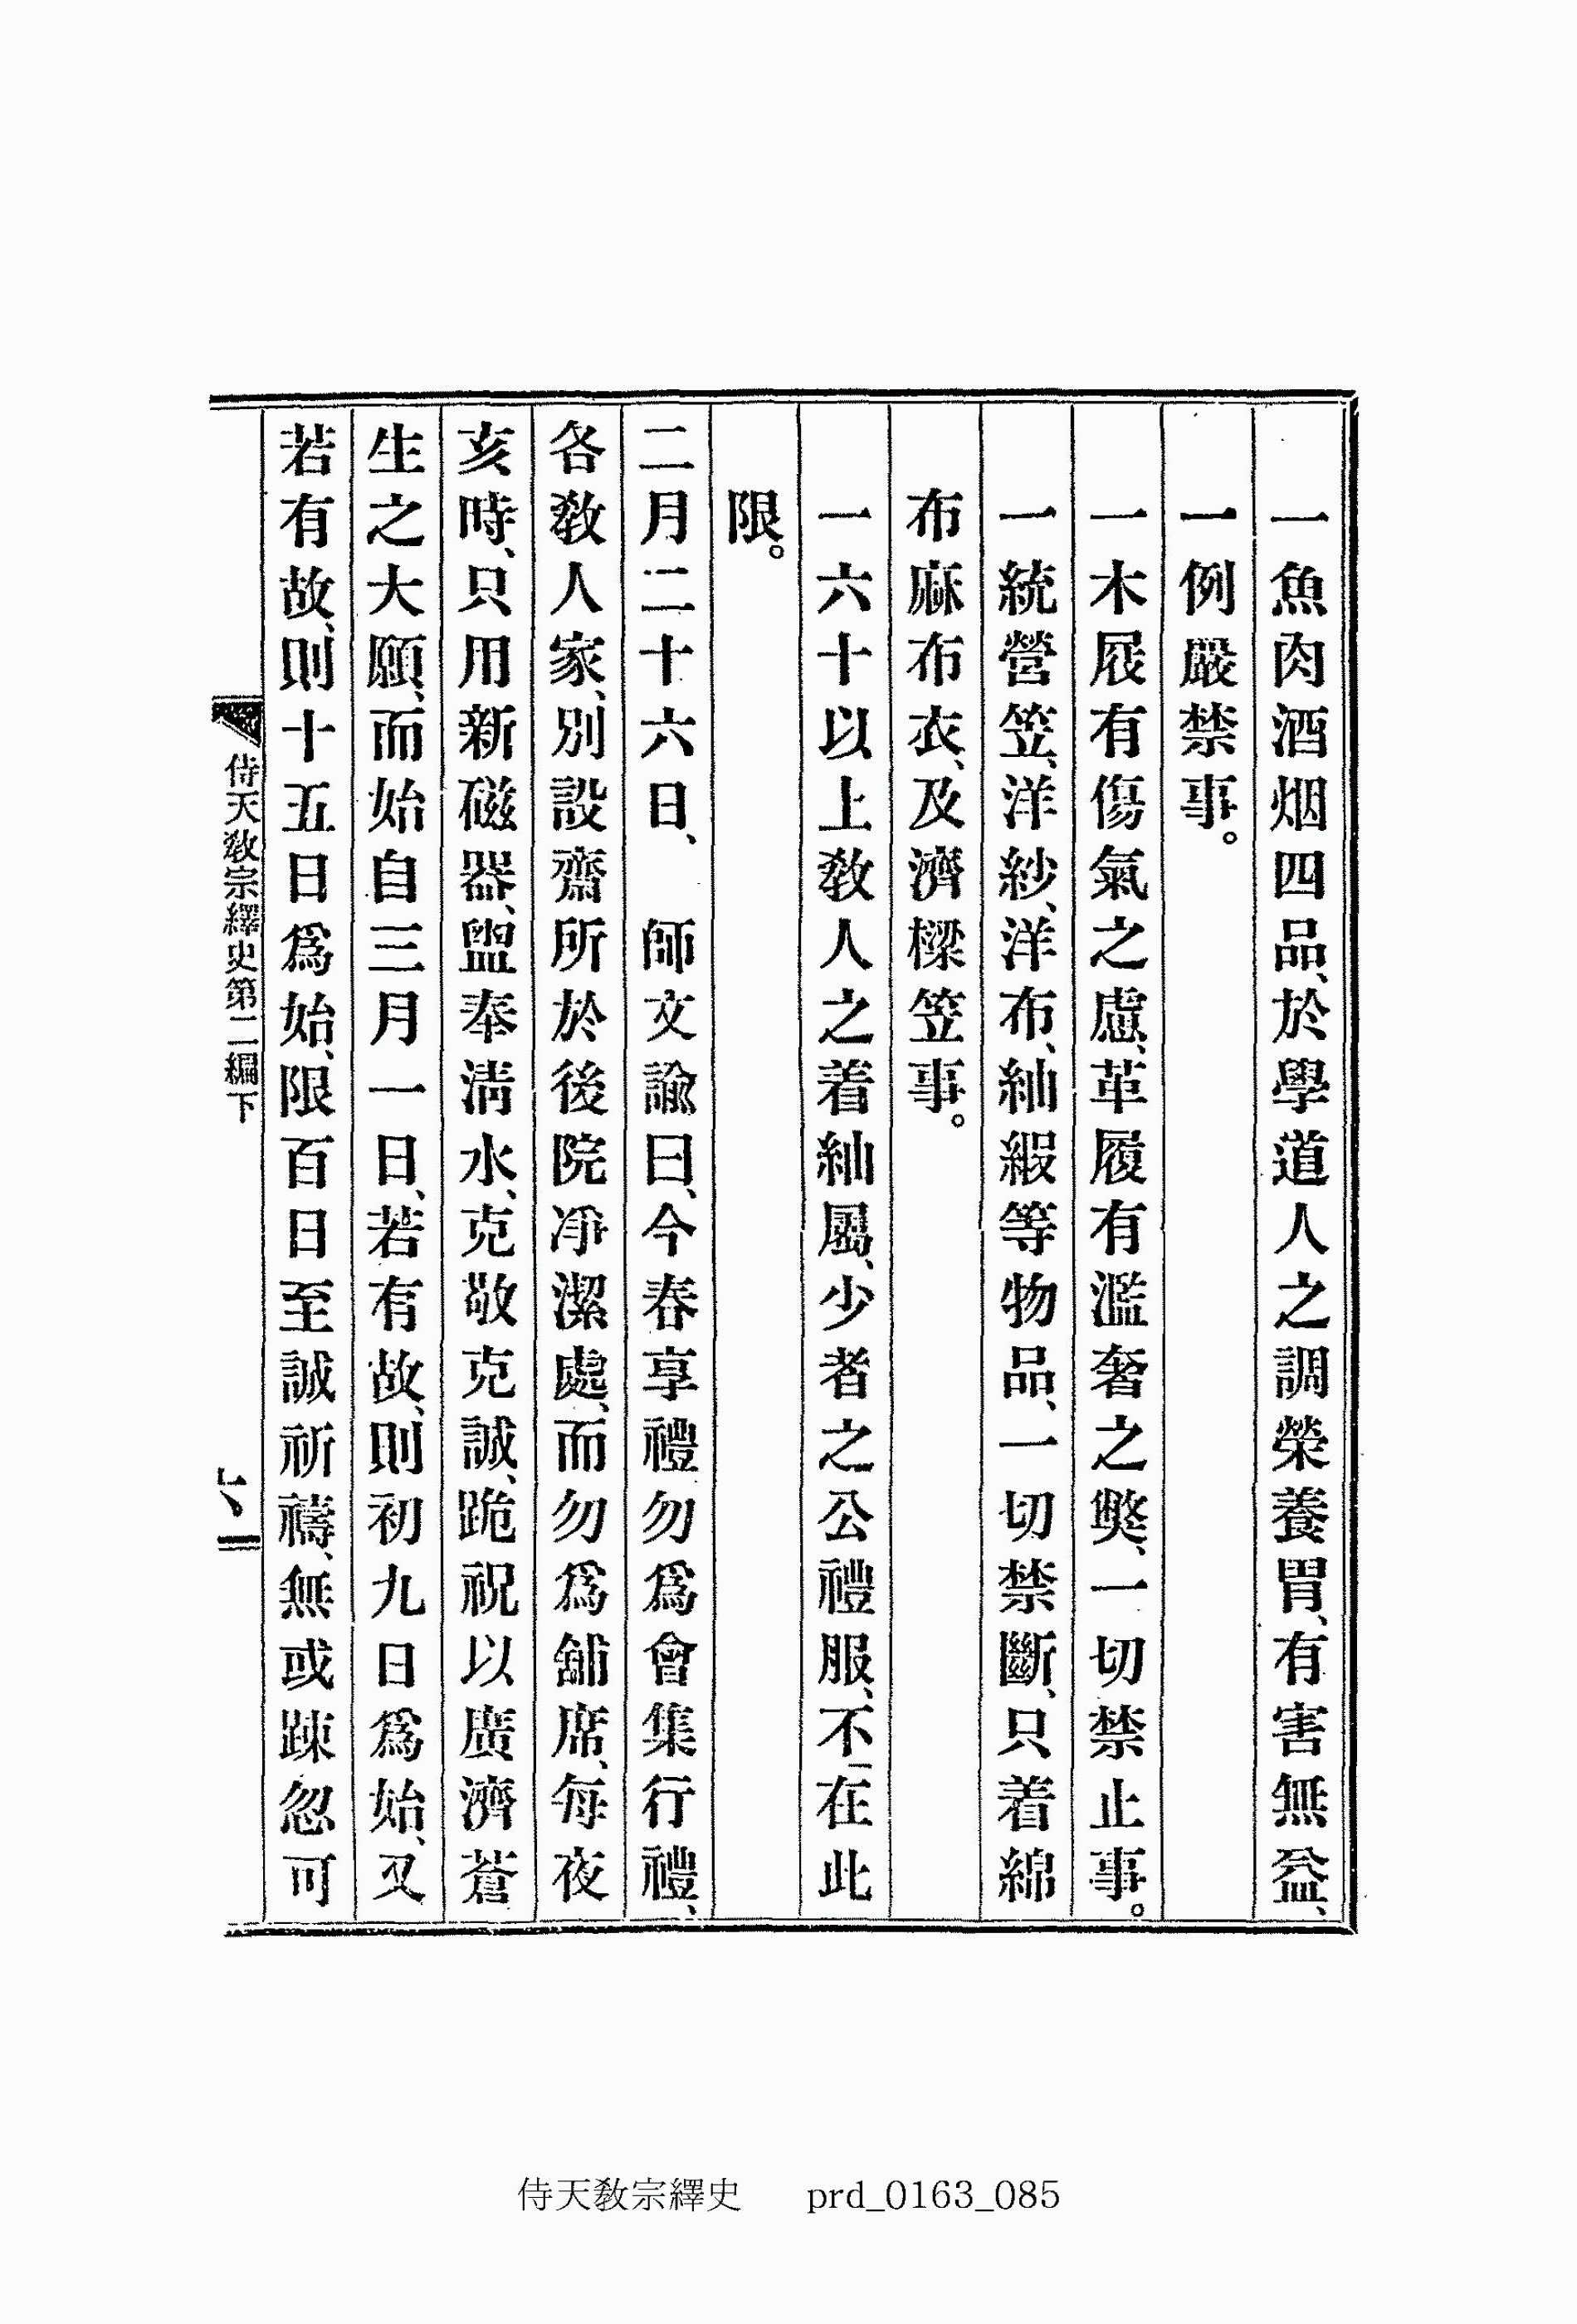 一魚肉酒烟四品、於學道人之調榮養胃、有害無益、
一例嚴禁事。
一木屐有傷氣之慮、革履有濫奢之獘、一切禁止事。
一統營笠、洋紗、洋布、紬緞等物品、一切禁斷、只着綿
布麻布衣、及濟樑笠事。
一六十以上敎人之着紬屬、少者之公禮服、不在此
限。
二月二十六日、 師文諭曰、今春享禮勿爲會集行禮、
各敎人家、別設齋所於後院凈潔處、而勿爲舖席、每夜
亥時、只用新磁器、盥奉淸水、克敬克誠、跪祝以廣濟蒼
生之大願、而始自三月一日、若有故、則初九日爲始、又
若有故、則十五日爲始、限百日至誠祈禱、無或踈忽可
侍天敎宗繹史第二編下
侍天敎宗繹史 prd_0163_085